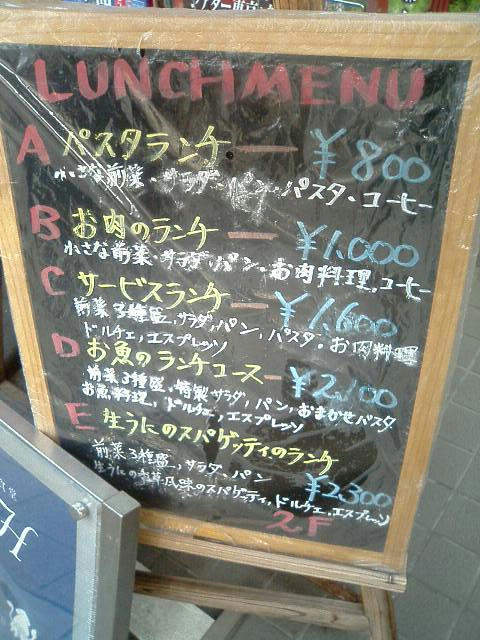 LUNCHMENU
A パスタランチ — ¥800
小さな前菜・サラダ・パン・パスタ・コーヒー
B お肉のランチ — ¥1,000
小さな前菜・サラダ・パン・お肉料理・コーヒー
C サービスランチ — ¥1,600
前菜3種盛、サラダ、パン、パスタ・お肉料理
ドルチェ、エスプレッソ
D お魚のランチコース — ¥2,100
前菜3種盛、特製サラダ、パン、おまかせパスタ
お魚料理、ドルチェ、エスプレッソ
E 生うにのスパゲッティのランチ
前菜3種盛、サラダ、パン ¥2,300
生うにの 風味のスパゲッティ、ドルチェ、エスプレッソ
2F